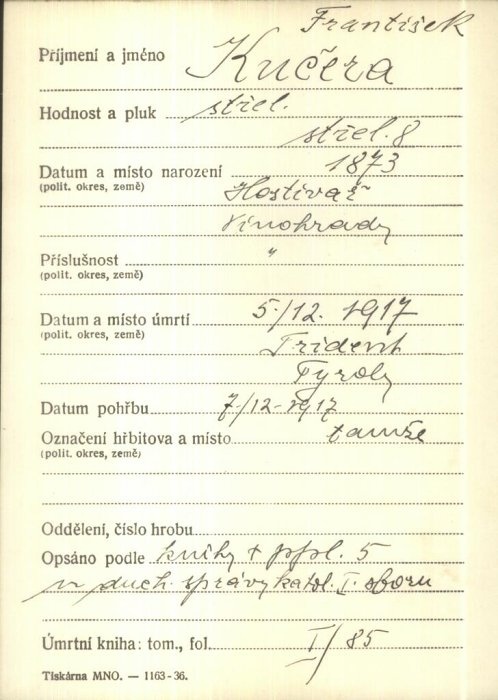 František
Příjmení a jméno Kučera
Hodnost a pluk střel.
střel. 8
Datum a místo narození 1873
(polit. okres, země) Hostivař
Vinohrady
Příslušnost "
(polit. okres, země)
Datum a místo úmrtí 5./12. 1917
(polit. okres, země) Trident
Tyroly
Datum pohřbu 7/12-1917
Označení hřbitova a místo tamže
(polit. okres, země)
Oddělení, číslo hrobu
Opsáno podle knihy + ppl. 5
duch. správy katol. I. sboru
Úmrtní kniha: tom., fol. I/85
Tiskárna MNO. — 1163-36.